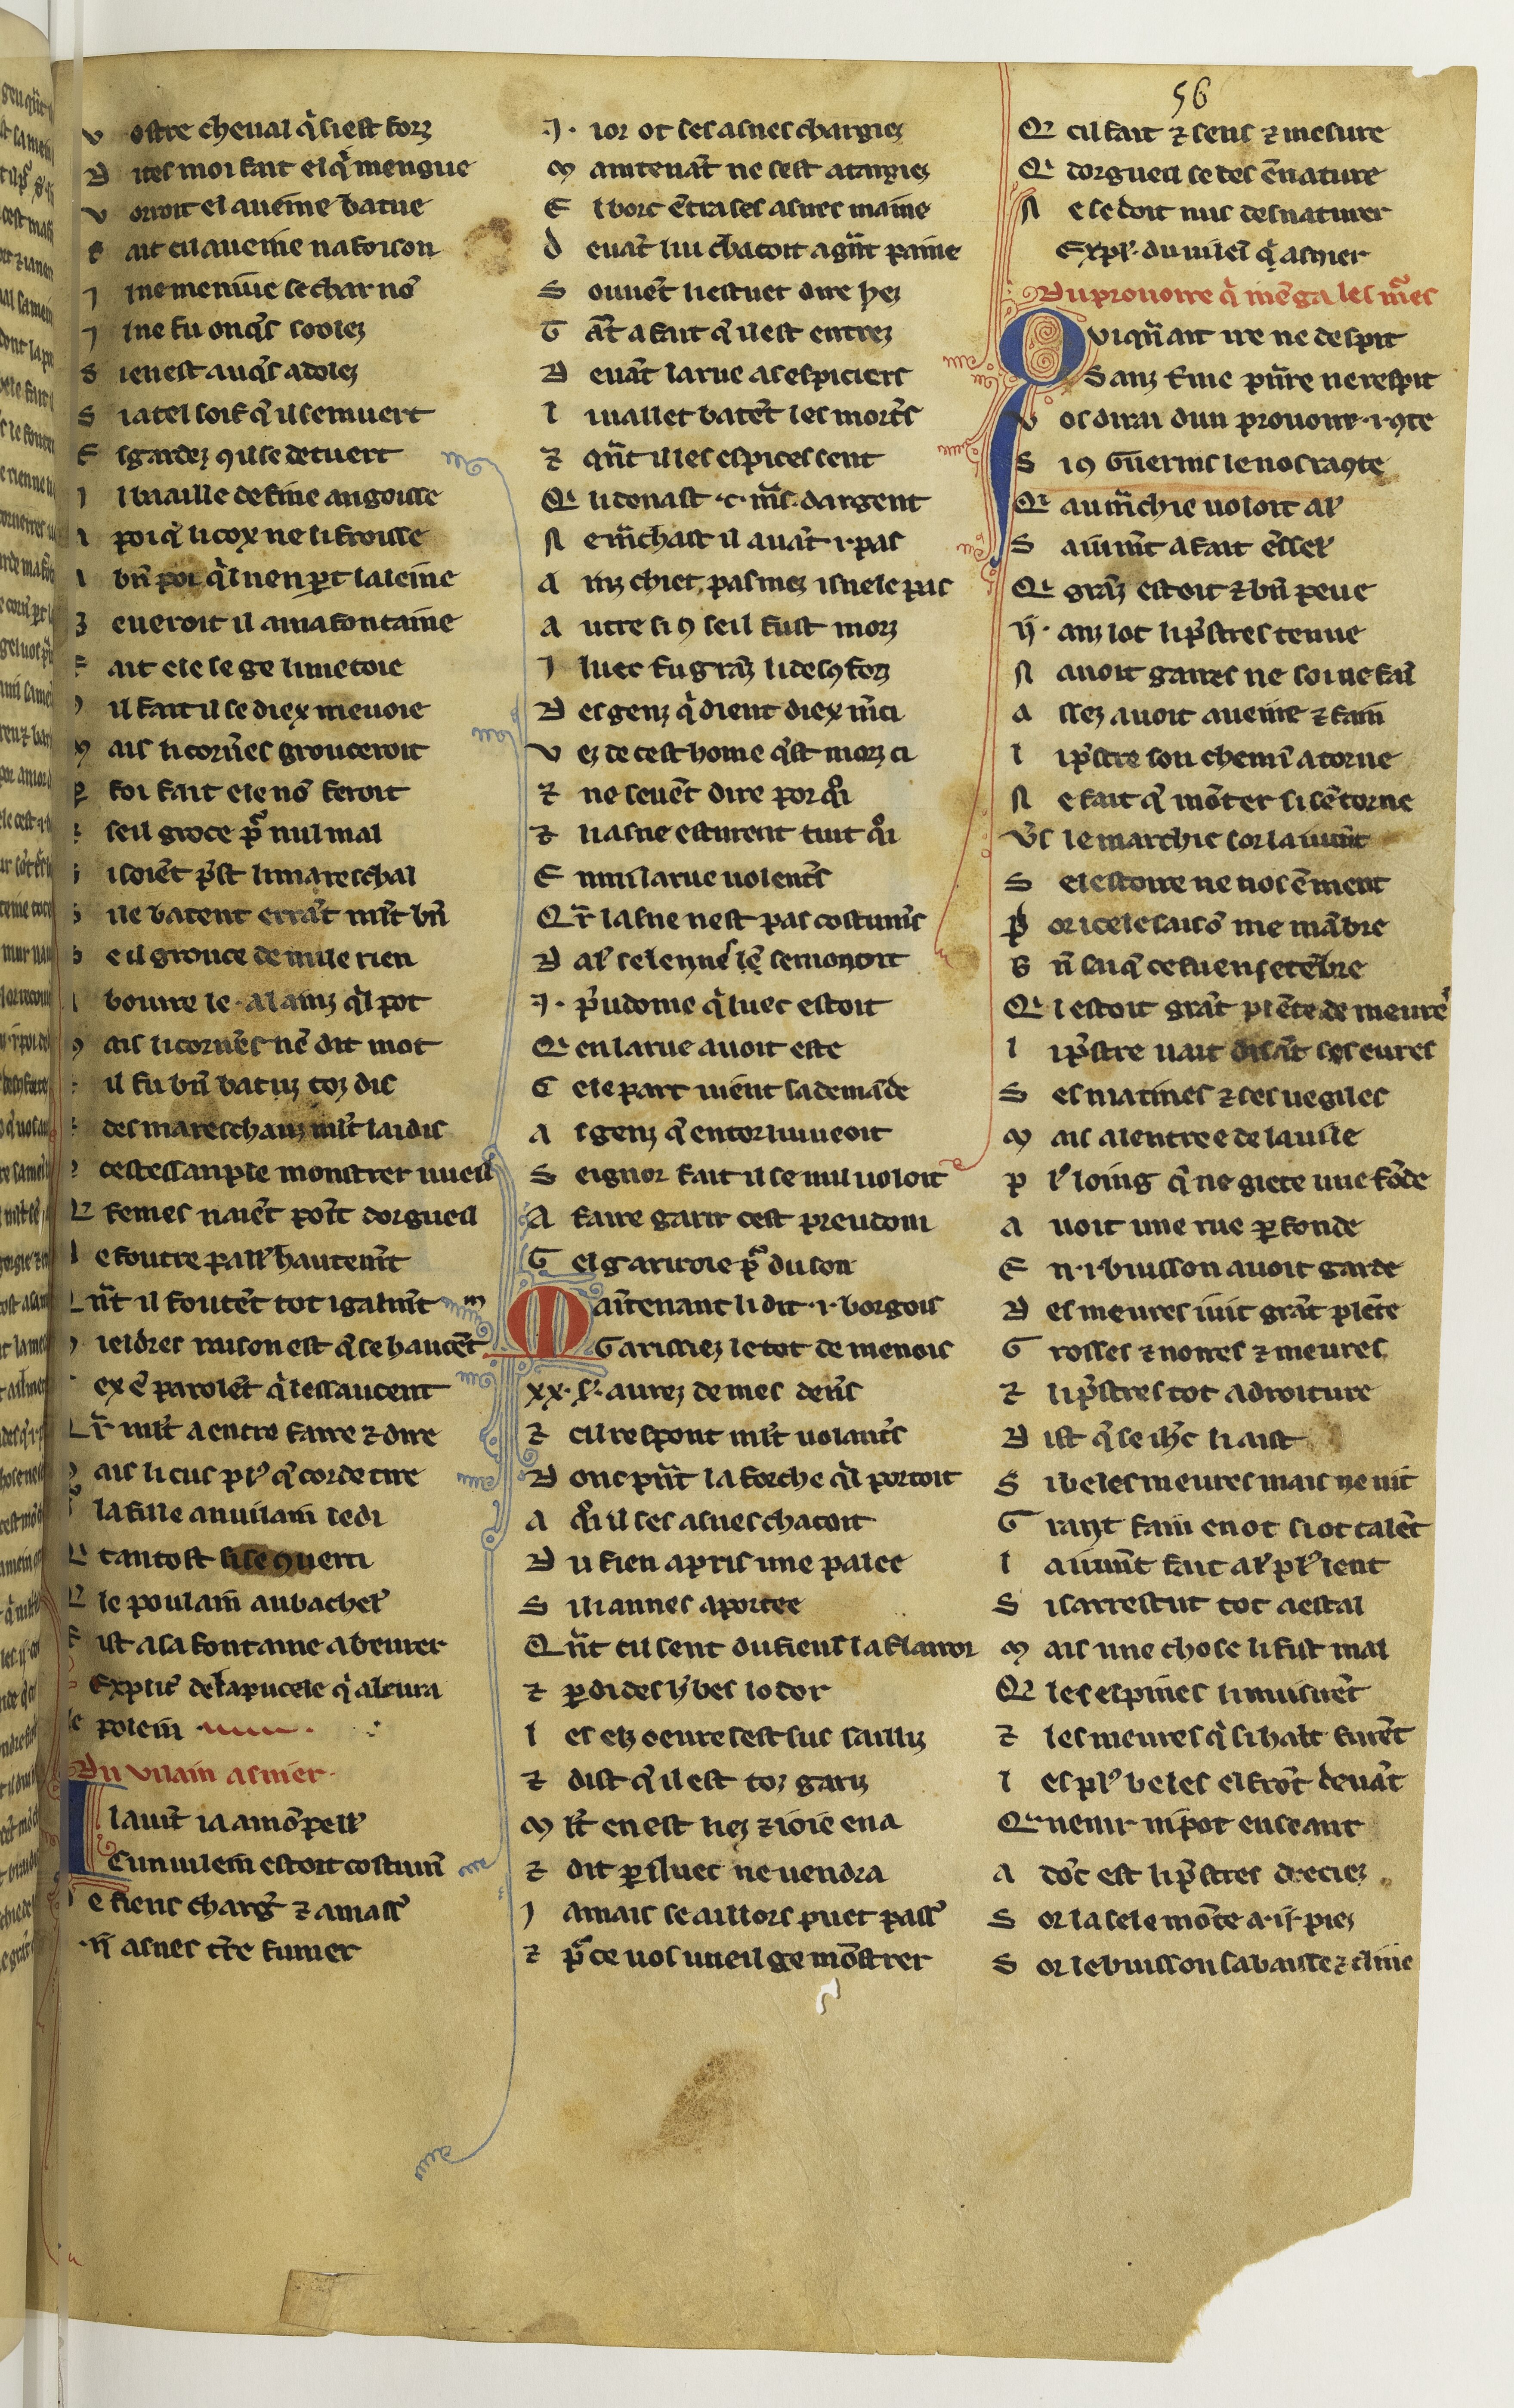 56
v ostre cheual q̃ si est forz
D ites moi fait el q̃ mengue
v orroit el aueine batue
F ait cil aueine na foison
J l ne meniue se char nõ
J l ne fu onq̃s soolez
S ien est auq̃s adolez
S i a tel soif q̃ il se muert
E sgardez 9 il se detuert
J l baaille de fine angoisse
poi q̃ li cox ne li froisse
bñ poi q̃l nen pert laleine
B eueroit il a ma fontaine
F ait ele se ge li metoie
il fait il se diex me uoie
M ais li cornẽs grouceroit
P foi fait ele nõ feroit
seil groce p̃ nul mal
i soiẽt p̃st li mareschal
i le batent errãt ml̃t bñ
e il grouce de nule rien
bourre le alainz q̃l pot
ais li cornẽs nẽ dit mot
il fu bñ batuz toz dis
des mareschauz ml̃t laidis
cest essanple monstrer uueil
Q femes naiẽt point dorgueil
e foutre parl̃ hautem̃t
Q ñt il foutẽt tot igalm̃t
ieldres raison est q̃ se haucẽt
ex ẽ parolẽt q̃ les saucent
r̃ ml̃t a entre faire z dire
ais li cus pl̃ q̃ corde tire
la fille au uilain le di
Q tantost si le 9uerti
Q le poulain au bachel̃
F ist a la fontaine abeurer
Explit̃ de la pucele q̃ abeura
le polein
Du vilain asnier.
I l auit̃ ia a mõpell̃
C un uilein estoit costum̃
e fiens charg̃ z amass̃
.ij. asnes tr̃e fumer
.J. ior ot ses asnes chargiez
M aintenãt ne sest atargiez
E l borc ẽtra ses asnes maine
d euãt lui chacoit a gñt paine
S ouuẽt li estuet dire hez
T ãt a fait q̃ il est entrez
D euãt la rue as espiciers
l i uallet batẽt les mort̃s
z qñt il les espices sent
Q ui donast .c. mãs dargent
N e mãchast il auãt .i. pas
a inz chiet pasmez isnelepas
a utre si 9 seil fust morz
J luec fu grãz li des9forz
D es genz q̃ dient diex m̃ci
v ez de cest home q̃st morz ci
z ne seuẽt dire por q̃i
z li asne esturent tuit q̃i
E nmi la rue uolent̃s
Q r̃ lasne nest pas costum̃s
D al̃ se len nel̃ lẽ semonoit
.J. p̃udome q̃ luec estoit
Q en la rue auoit este
C ele part uient sa demãde
A s genz q̃ entor lui ueoit
S eignor fait il se nul uoloit
A faire garir cest preudom
G el garroie p̃ du son
M aĩtenant li dit .i. borgois
G arissiez le tot demenois
xx. s̃. aurez de mes den̾s
z cil respont ml̃t uolant̃s
D onc pñt la forche q̃l portoit
A q̃i il ses asnes chacoit
D u fien a pris une palee
S i li a au nes aportee
Q ñt cil sent du fiens la flairor
z p̃di des h̾bes lodor
l es elz oeure sest sus sailliz
z dist q̃ il est toz gariz
M l̃t en est liez z ioie en a
z dit p iluec ne uendra
J amais se aillors puet pass̃
z p̃ ce uos uueil ge mõstrer
Q cil fait z sens z mesure
Q dorgueil se des ẽnature
N e se doit nus desnaturer
Expl̃. du uilein q̃ asnier
Du prouoire q̃ mẽga les m̃es
Q ui qñ ait ire ne despit
S anz t̾me pñre ne respit
v os dirai dun prouoire .i. 9te
S i 9 Guerins le nos ra9te
Q au m̃chie uoloit al̃
S a iumẽt a fait ẽsel̃
Q grãz estoit z bñ peue
.ij. anz lot li p̃stres tenue
N auoit gaires ne soi ne fain
a ssez auoit aueine z fain
l i p̃stre son chemĩ atorne
N e fait q̃ mõter si sẽ torne
v̾s le marchie sor la iumẽt
S e lestoire ne nos ẽ ment
P or icele saisõ me mãbre
B ñ sai q̃ ce fu en setẽbre
Q l estoit grãt plẽte de meure
l i p̃stre uait disãt ses eures
S es matines z ses uegiles
M ais a lentree de la uile
P l̃ loing q̃ ne giete une fõde
a uoit une rue p fonde
E n .i. buisson auoit garde
D es meures iuit grãt plẽte
G rosses z noires z meures
z li p̃stres tot a droiture
D ist q̃ se ih̃c li aist
S i beles meures mais ne uit
G rant fain en ot si ot talẽt
l a iumẽt fait al̃ pl̃ lent
S i sarrestut tot a estal
M ais une chose li fist mal
Q les espines li nuisirẽt
z les meures q̃ si halt furẽt
l es pl̃ beles el frõt deuãt
Q uenir ni pot en seant
a dõc est li p̃stres dreciez
S or la sele mõte a .ij. piez
S or le buisson sabaisse z cline